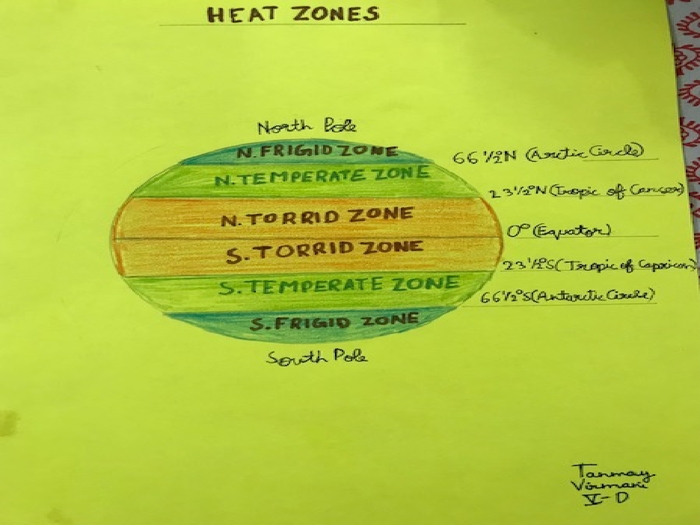 HEAT ZONES
North Pole
N. FRIGID ZONE
66 1/2°N (Arctic Circle)
N. TEMPERATE ZONE
23 1/2°N (Tropic of Cancer)
N. TORRID ZONE
0° (Equator)
S. TORRID ZONE
23 1/2°S (Tropic of Capricon)
S. TEMPERATE ZONE
66 1/2°S (Antarctic Circle)
S. FRIGID ZONE
South Pole
Tanmay
Virmani
V-D